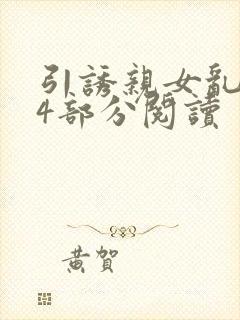 引誘親女亂
4部分閱讀
黃賀